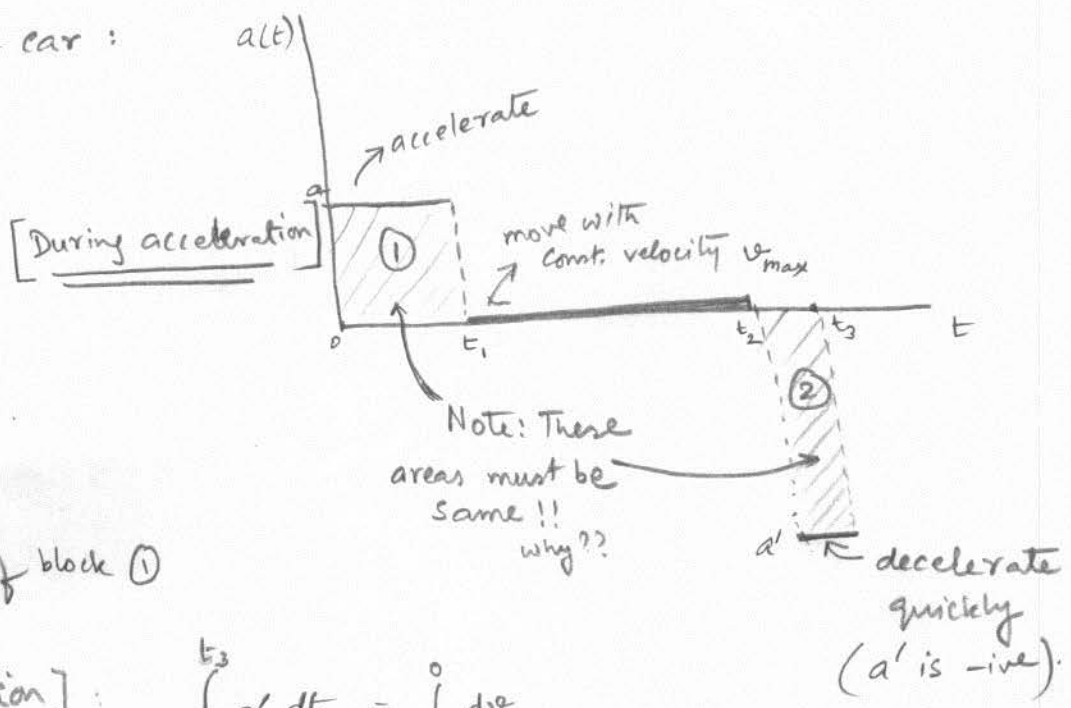 car :
a(t)
accelerate
a
[During acceleration]
①
move with
const. velocity v_max
0
t₁
t₂
t₃
t
②
Note: These
areas must be
same !!
why??
a'
decelerate
quickly
(a' is -ive).
of block ①
ion] : ∫ t₃ a' dt = ∫ 0 dv